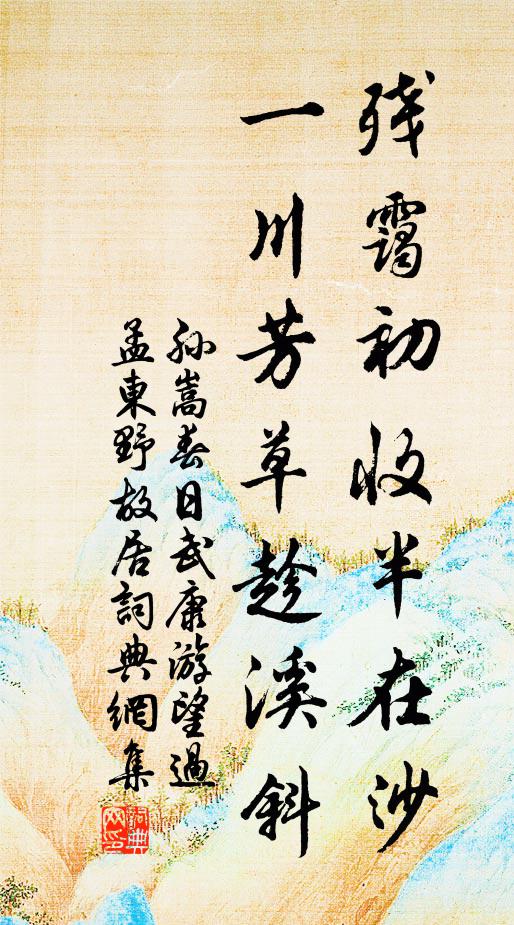 残靄初收半在沙
一川芳草趁溪斜
孙嵩春日武康游望過
孟東野故居詞典網集
詞典网印